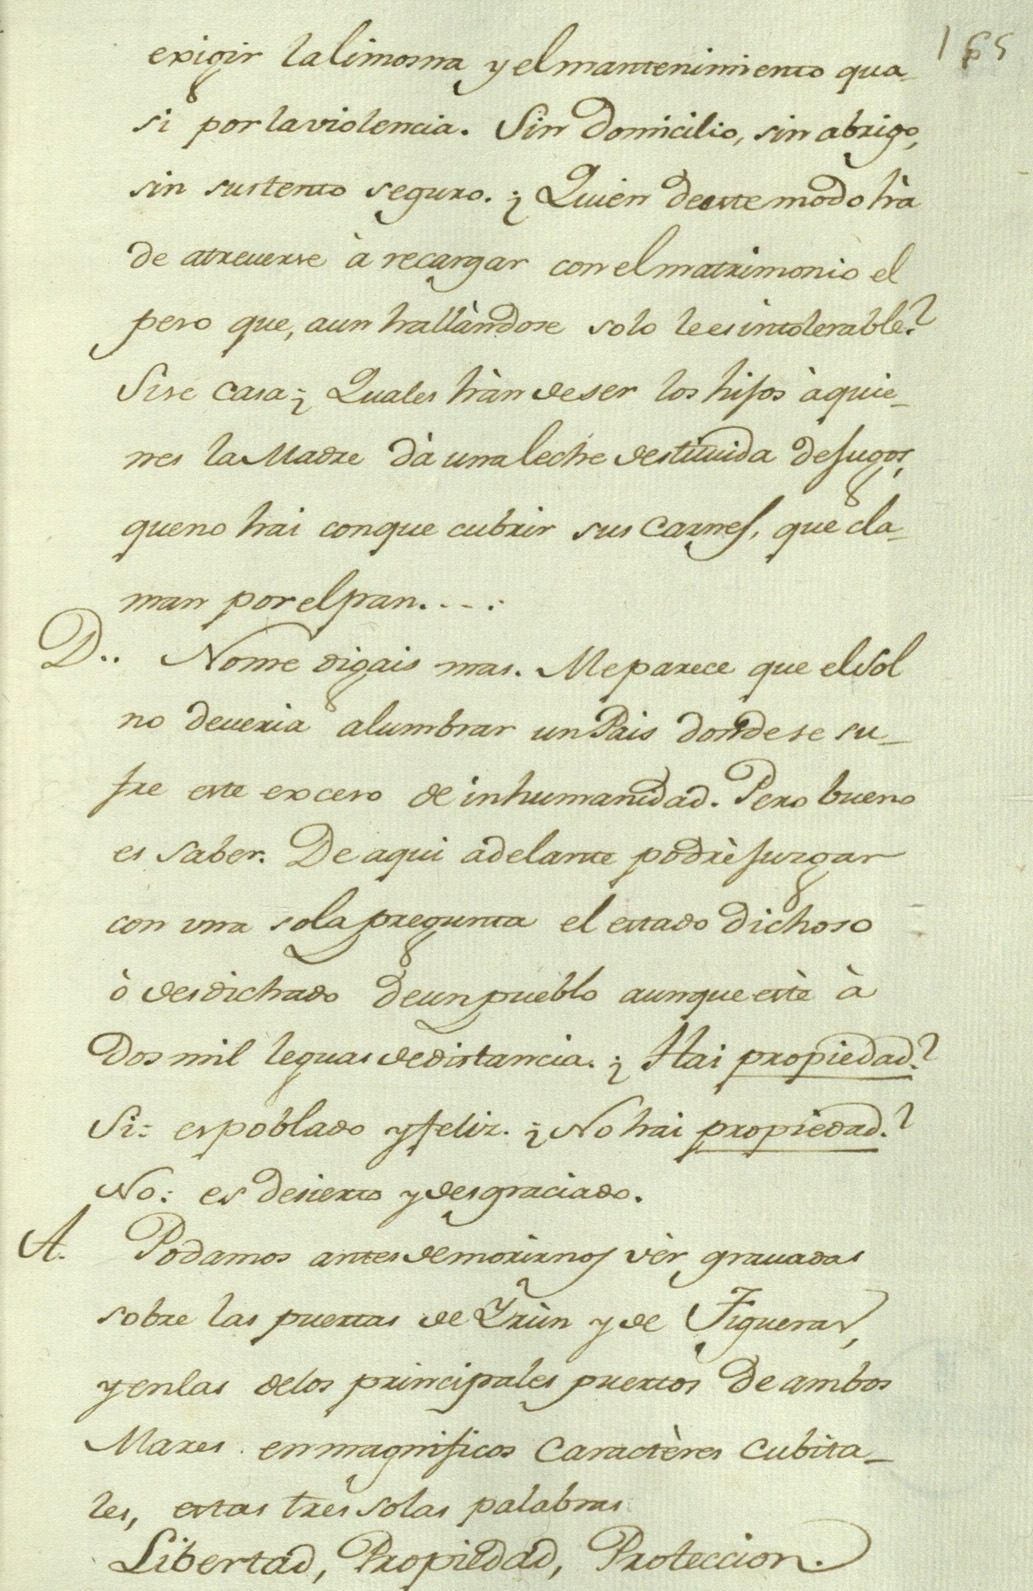 165
exigir la limosna y el mantenimiento qua-
si por la violencia. Sin domicilio, sin abrigo,
sin sustento seguro. ¿Quien de este modo hà
de atreverse à recargar con el matrimonio el
peso que, aun hallàndose solo le es intolerable?
Si se casa ¿Quales hàn de ser los hijos à quie-
nes la Madre dà una leche destituida de jugos,
que no hai con que cubrir sus carnes, que cla-
man por el pan....
D.. No me digais mas. Me parece que el Sol
no deveria alumbrar un Pais donde se su-
fre este exceso de inhumanidad. Pero bueno
es saber. De aqui adelante podrè juzgar
con una sola pregunta el estado dichoso
ò desdichado de un pueblo aunque estè à
dos mil leguas de distancia. ¿Hai propiedad?
Si: es poblado y feliz. ¿No hai propiedad?
No: es desierto y desgraciado.
A. Podamos antes de morirnos vèr gravadas
sobre las puertas de Yrùn y de Figueras,
y en las de los principales puertos de ambos
Mares en magnificos caractères cubita-
les, estas tres solas palabras
Libertad, Propiedad, Proteccion.